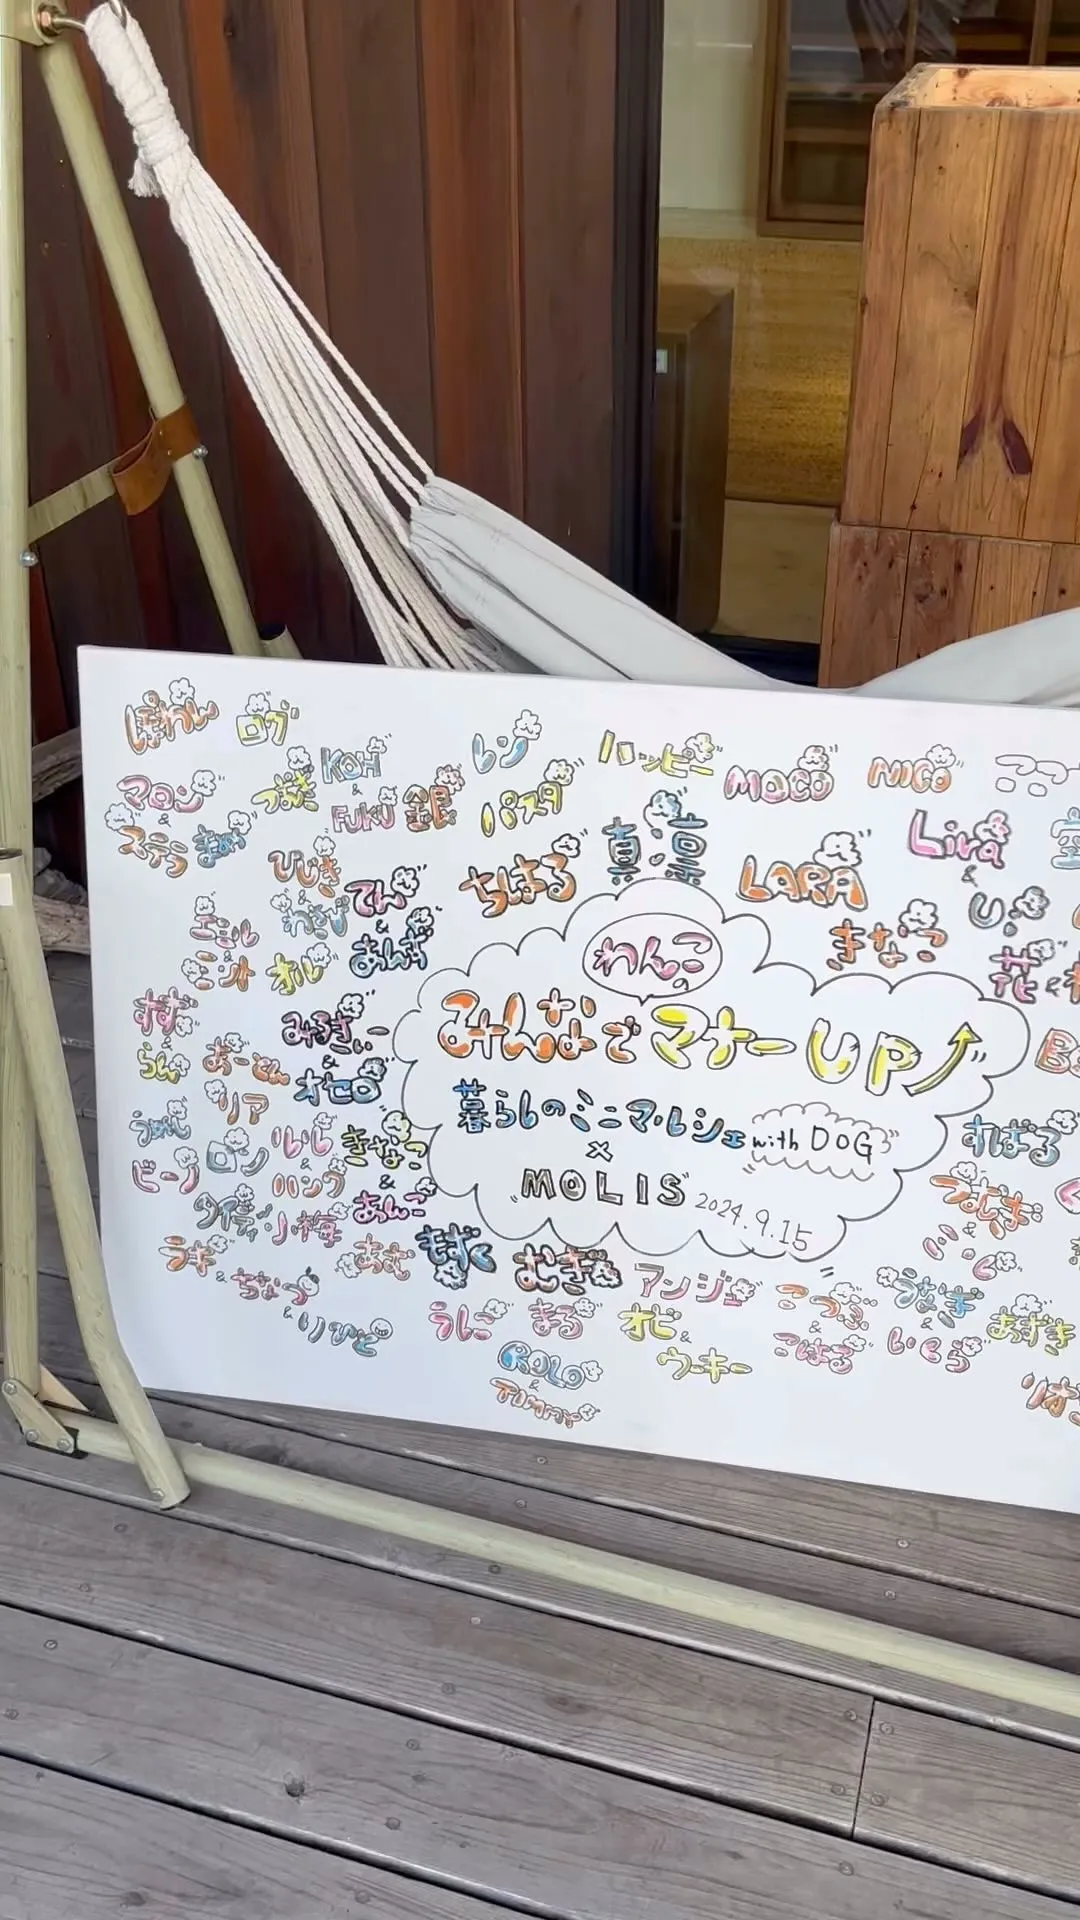 ぽわん ログ
レン
ハッピー
MOCO
NICO
ココ
KOH
&
FUKU
マロン
&
ステラ
つむぎ
まめ
銀
パスタ
真凛
Lira
&
ひじき
&
わさび
てん
&
あんず
ちはる
LARA
きなこ
エミル
&
ミント
オル
花 &
わんこの
みんなでマナーUP
暮らしのミニマルシェ with DOG
×
MOLIS 2024.9.15
すず
らん
みるきぃー
&
オセロ
リア
ロン
ビーノ
りし
&
ハング
きなこ
&
あんこ
小梅
すばる
つむぎ
ラキ
&
ちなつ
&
りひと
あむ
もずく
むぎ
アンジュ
こつぶ
&
こはる
うなぎ
&
いくら
あずき
うに
まる
オビ &
ウーキー
ROLO
&
TIMMY